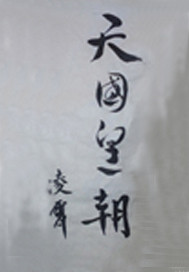 天國皇朝
凌霄